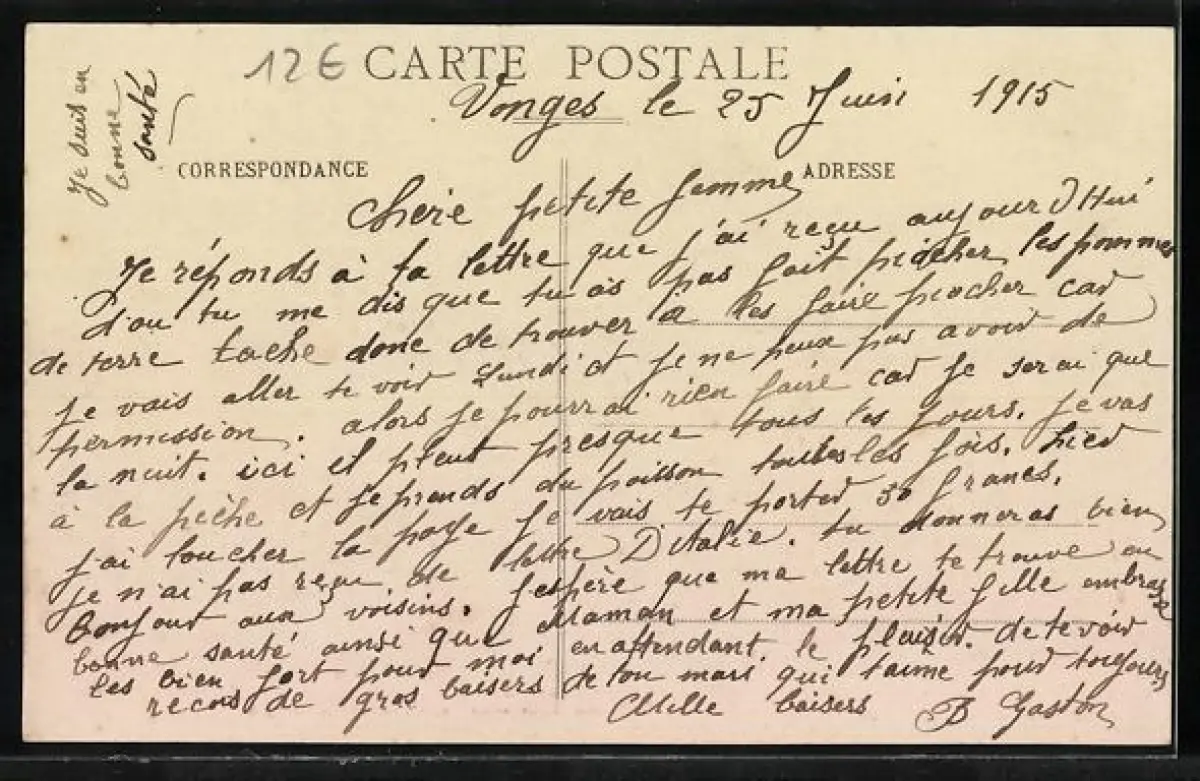 12€ CARTE POSTALE
Je suis en
bonne
santé
Vonges le 25 Juin 1915
CORRESPONDANCE
ADRESSE
Chère petite femme
Je réponds à ta lettre que j'ai reçu aujourd'Hui
d'ou tu me dis que tu as pas fait piocher les pommes
de terre tache donc de trouver a les faire piocher car
je vais aller te voir Lundi et je ne peux pas avoir de
permission. alors je pourrai rien faire car je serai que
la nuit. ici il pleut presque tous les jours. je vas
à la pêche et je prends du poisson toutes les fois. hier
j'ai toucher la paye je vais te porter 50 francs.
je n'ai pas reçu de lettre D'italie. tu donneras bien
bonjour aux voisins. J'espère que ma lettre te trouve en
bonne santé ainsi que Maman et ma petite fille embrasse
les bien fort pour moi en attendant le plaisir de te voir
recois de gros baisers de ton mari qui t'aime pour toujours
Mille baisers B Gaston